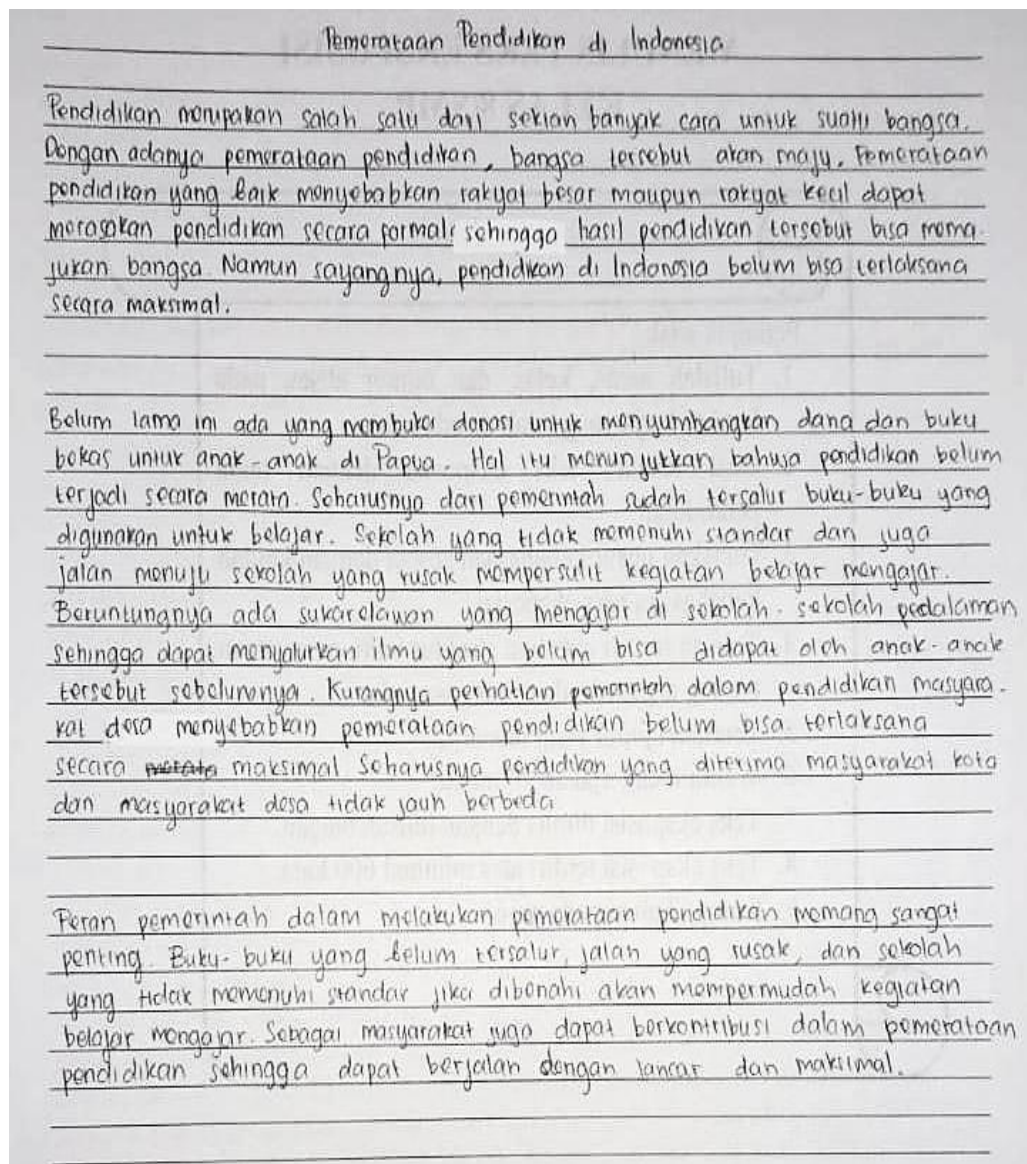 Pemerataan Pendidikan di Indonesia
Pendidikan merupakan salah satu dari sekian banyak cara untuk suatu bangsa.
Dengan adanya pemerataan pendidikan, bangsa tersebut akan maju. Pemerataan
pendidikan yang baik menyebabkan rakyat besar maupun rakyat kecil dapat
merasakan pendidikan secara formal, sehingga hasil pendidikan tersebut bisa mema-
jukan bangsa. Namun sayangnya, pendidikan di Indonesia belum bisa terlaksana
secara maksimal.
Belum lama ini ada yang membuka donasi untuk menyumbangkan dana dan buku
bekas untuk anak-anak di Papua. Hal itu menunjukkan bahwa pendidikan belum
terjadi secara merata. Seharusnya dari pemerintah sudah tersalur buku-buku yang
digunakan untuk belajar. Sekolah yang tidak memenuhi standar dan juga
jalan menuju sekolah yang rusak mempersulit kegiatan belajar mengajar.
Beruntungnya ada sukarelawan yang mengajar di sekolah-sekolah pedalaman
sehingga dapat menyalurkan ilmu yang belum bisa didapat oleh anak-anak
tersebut sebelumnya. Kurangnya perhatian pemerintah dalam pendidikan masyara-
kat desa menyebabkan pemerataan pendidikan belum bisa terlaksana
secara merata maksimal. Seharusnya pendidikan yang diterima masyarakat kota
dan masyarakat desa tidak jauh berbeda
Peran pemerintah dalam melakukan pemerataan pendidikan memang sangat
penting. Buku-buku yang belum tersalur, jalan yang rusak, dan sekolah
yang tidak memenuhi standar jika dibenahi akan mempermudah kegiatan
belajar mengajar. Sebagai masyarakat juga dapat berkontribusi dalam pemerataan
pendidikan sehingga dapat berjalan dengan lancar dan maksimal.